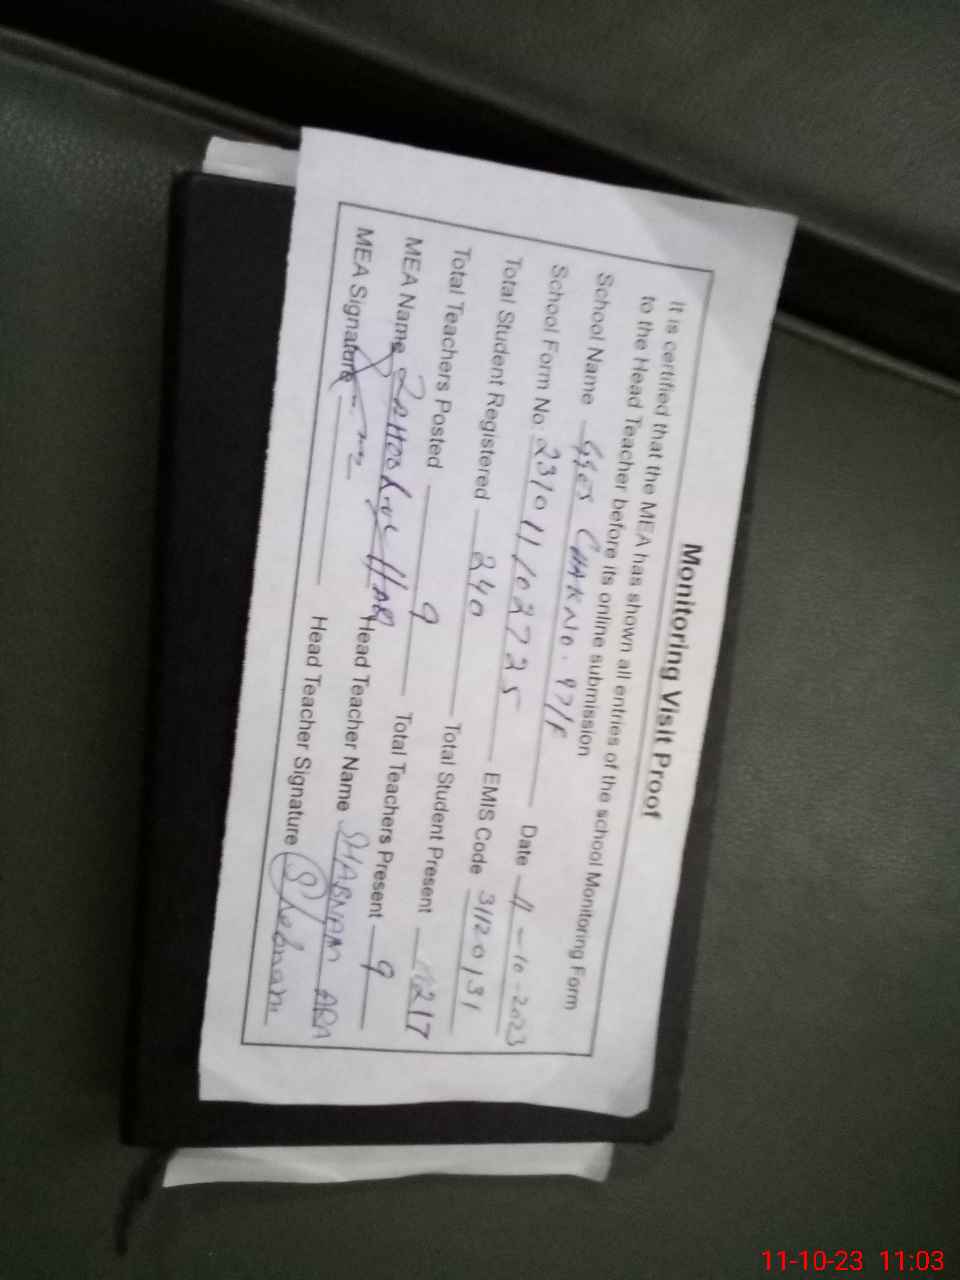 Monitoring Visit Proof
It is certified that the MEA has shown all entries of the school Monitoring Form
to the Head Teacher before its online submission
School Name GGES CHAK NO. 97/F
School Form No. 231011102725 Date 11-10-2023
Total Student Registered 240 EMIS Code 31120131
Total Teachers Posted 9 Total Student Present 217
MEA Name Zahoor ul Haq Total Teachers Present 9
MEA Signature Head Teacher Name SHABNAM ARA
Head Teacher Signature Shabnam
11-10-23 11:03